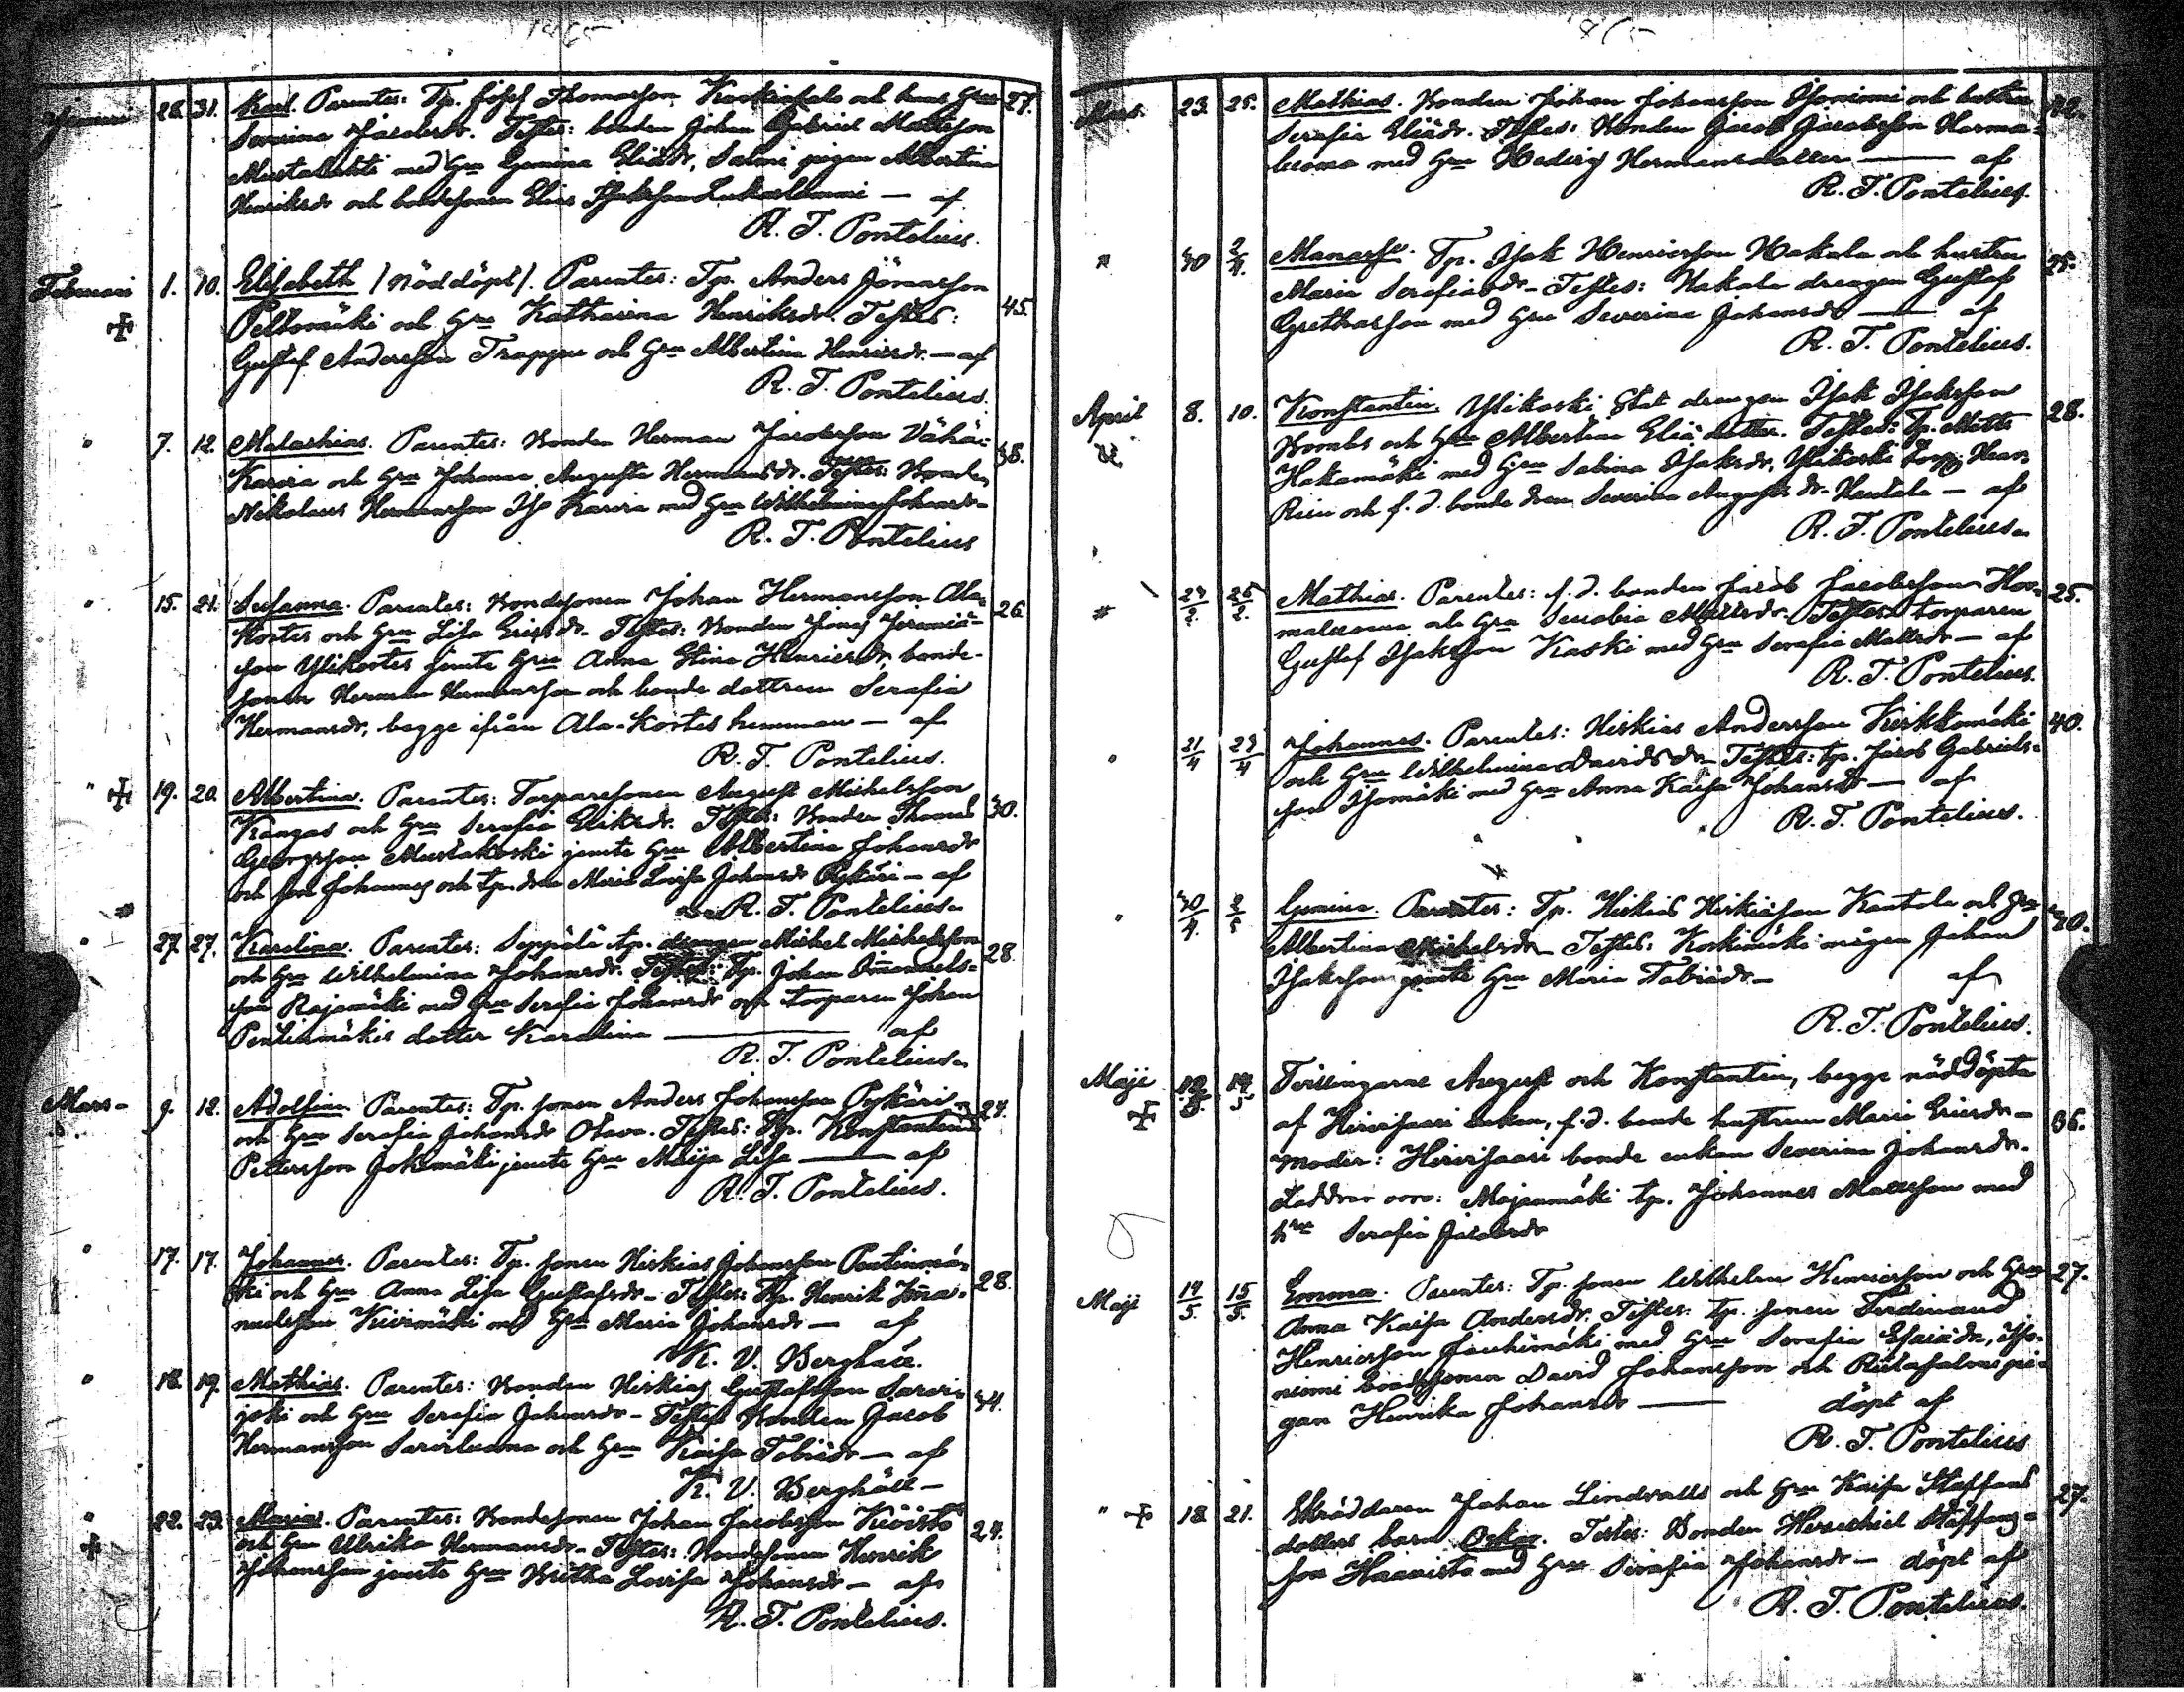 1865
Januari 28. 31. Karl. Parentes: Tp. Josef Thomasson Koskiahde och hans Gru 27.
Severina Jacobsdr. Testes: bonden Johan Gabriel Mattsson
Mustalahti med Gru Gemina Eliädr, Salmi pigan Albertina
Henriksdr och bondesonen Elias Isaksson Lukaslammi — af
R. T. Pontelius.
Februari 1. 10. Elisabeth (Nöddöpt). Parentes: Tp. Anders Jönnsson
Peltomäki och Gru Katharina Henriksdr. Testes: 45.
Gustaf Andersson Trappu och Gru Albertina Henricsdr. — af
R. T. Pontelius.
" 7. 12. Malachias. Parentes: Bonden Herman Jacobsson Vähä- 38.
Karvia och Gru Johanna Augusta Hermansdr. Testes: Bonden
Nikolaus Hermansson Iso Karvia med Gru Wilhelmina Johansdr-
R. T. Pontelius
" 15. 21. Susanna. Parentes: Bondesonen Johan Hermansson Ala- 26.
Kortes och Gru Lisa Ericsdr. Testes: Bonden Jonas Jeremiä-
son Ylikortes jemte Gru Anna Stina Henricsdr, bonde-
sonen Herman Hermansson och bonde dottren Serafia
Hermansdr, begge ifrån Ala-Kortes hemman — af
R. T. Pontelius.
" 19. 20. Albertina. Parentes: Torparesonen August Michelsson
Kangas och Gru Serafia Eriksdr. Testes: Bonden Thomas 30.
Georgsson Mustakoski jemte Gru Albertina Johansdr
och son Johannes och tp. dran Maria Lovisa Johansdr Pykäri — af
R. T. Pontelius.
" 27. 27. Karolina. Parentes: Seppälä tp. drangen Michel Michelsson 28.
och Gru Wilhelmina Johansdr. Testes: Tp. Johan Immanuels-
son Rajamäki med Gru Serafia Johansdr och torparen Johan
Pentinmäkis dotter Karolina — af
R. T. Pontelius.
Mars 9. 12. Adolfina. Parentes: Tp. sonen Anders Johansson Pykäri 27.
och Gru Serafia Johansdr Otava. Testes: Tp. Konstantin
Pettersson Jokimäki jemte Gru Maija Lisa — af
R. T. Pontelius.
" 17. 17. Johannes. Parentes: Tp. sonen Hiskias Johansson Pentinmä-
ki och Gru Anna Lisa Gustafsdr. Testes: Tp. Henrik Imma- 28.
nuelsson Kiirimäki med Gru Maria Johansdr — af
K. V. Berghäll.
" 18. 19. Mathias. Parentes: Bonden Hiskias Gustafsson Sarvi-
joki och Gru Serafia Johansdr. Testes Bonden Jacob 34.
Hermansson Sarviluoma och Gru Kaisa Tobiädr — af
K. V. Berghäll —
" 22. 23. Maria. Parentes: Bondesonen Johan Jacobsson Köistö
och Gru Ulrika Hermansdr. Testes: Bondesonen Henrik 27.
Johansson jemte Gru Britha Lovisa Johansdr — af
R. T. Pontelius.
Mars 23. 25. Mathias. Bonden Johan Johansson Isoniemi och hustru 42.
Serafia Eliädr. Testes: Bonden Jacob Jacobsson Harma-
luoma med Gru Hedvig Hermansdotter — af
R. T. Pontelius.
30 2/4. Manasse. Tp. Isak Henricsson Hakala och hustru 25.
Maria Serafiasdr. Testes: Hakala drengen Gustaf
Grethasson med Gru Severina Johansdr — af
R. T. Pontelius.
April 8. 10. Konstantin. Ylikoski Stat drengen Isak Isaksson 28.
Bombs och Gru Albertina Eliä dotter. Testes: Tp. Matts
Hakamäki med Gru Sabina Isaksdr, Ylikoski torp. Hean
Reini och f. d. bonde dren Severina Augusts dr. Hautala — af
R. T. Pontelius.
24/2. 25/2. Mathias. Parentes: f. d. bonden Jacob Jacobsson Hos- 25.
maluoma och Gru Senobia Mattsdr. Testes torparen
Gustaf Isaksson Kaski med Gru Serafia Mattsdr — af
R. T. Pontelius.
" 21/4 23/4 Johannes. Parentes: Hiskias Andersson Kirkkomäki 40.
och Gru Wilhelmina Davidsdr. Testes: tp. Jacob Gabriels-
son Isomäki med Gru Anna Kaisa Johansdr — af
R. T. Pontelius.
" 30/4. 2/5 Gemina. Parentes: Tp. Hiskias Hiskiäson Kantola och Gru
Albertina Michelsdr. Testes: Koskimäki mågen Johan 40.
Isaksson jemte Gru Maria Tobiädr — af
R. T. Pontelius.
Maji 12/5. 14/5 Tvillingarne August och Konstantin, begge nöddöpta
af Hirvisaari enkan, f. d. bonde hustrun Maria Ericsdr — 36.
Moder: Hirvisaari bonde enkan Severina Johansdr.
Faddrar voro: Majaamäki tp. Johannes Mattsson med
hru Serafia Jacobsdr
Maji 14/5. 15/5. Emma. Parentes: Tp. sonen Wilhelm Henricsson och Gru 27.
Anna Kaisa Andersdr. Testes: tp. sonen Ferdinand
Henricsson Jauhimäki med Gru Serafia Esaiädr, Iso-
niemi bondsonen David Johansson och Riitasalmi pi-
gan Henrika Johansdr — döpt af
R. T. Pontelius
" 18 21. Skräddaren Johan Lindvalls och Gru Kaisa Staffans 27.
dotters barn Oskar. Testes: Bonden Hesechiel Staffans-
son Haavisto med Gru Serafia Johansdr — döpt af
R. T. Pontelius.